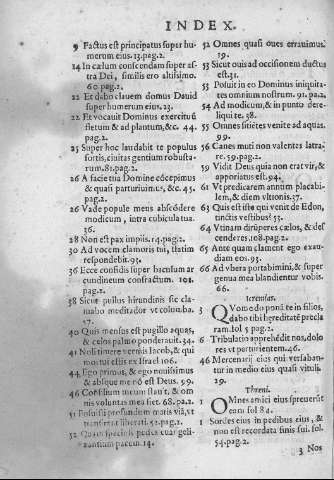 INDEX.
9 Factus est principatus super hu-
merum eius. 13. pag. 2.
14 In cælum conscendam super as-
tra Dei, similis ero altissimo.
60 pag. 2.
22 Et dabo clauem domus Dauid
super humerum eius. 23.
22 Et vocauit Dominus exercitu
ad fletum & ad plantum, &c. 44.
pag. 2.
25 Super hoc laudabit te populus
fortis, ciuitas gentium robusta-
rum. 81. pag. 2.
26 A facie tua Domine cōcepimus
& quasi parturiuimus, &c. 45.
pag. 2.
26 Vade popule meus abscōdere
modicum, intra cubicula tua.
36.
28 Non est pax impiis. 14. pag. 2.
30 Ad vocem clamoris tui, statim
respondebit. 93.
36 Ecce confidis super baculum ar
cundineum confractum. 101.
pag. 2.
38 Sicut pullus hirundinis sic cla-
mabo meditabor vt columba.
17.
40 Quis mensus est pugillo aquas,
& cœlos palmo ponderauit. 34.
41 Noli timere vermis Iacob, & qui
mortui estis ex Israel. 106.
44 Ego primus, & ego nouissimus
& absque me nō est Deus. 99.
46 Consilium meum stabit, & om
nis voluntas mea fiet. 68. pa. 2.
51 Posuisti profundum maris viā, vt
transirent liberati. 52. pag. 1.
52 Quam speciosi pedes euangeli-
zantium pacem. 14.
52 Omnes quasi oues errauimus.
19.
53 Sicut ouis ad occisionem ductus
est. 31.
53 Posuit in eo Dominus iniquita-
tes omnium nostrum. 91. pa. 2.
54 Ad modicum, & in puncto dere-
liqui te. 38.
55 Omnes sitiētes venite ad aquas.
99.
56 Canes muti non valentes latra-
re. 59. pag. 2.
59 Vidit Deus quia non erat vir, &
aporiatus est. 94.
61 Vt predicarem annum placabi-
lem, & diem vltionis. 37.
63 Quis est iste qui venit de Edon,
tinctis vestibus? 55.
64 Vtinam dirūperes cælos, & des
cenderes. 108. pag. 2.
65 Ante quam clament ego exau-
diam eos. 93.
66 Ad vbera portabimini, & super
genua mea blandientur vobis.
66.
Ieremias.
3 QVomodo ponā te in filios,
& dabo tibi hereditatē præcla
ram. fol 5 pag. 2.
6 Tribulatio apprehēdit nos, dolo
res vt parturientem. 46.
46 Mercenarij eius qui versaban-
tur in medio eius quasi vituli.
29.
Threni.
1 OMnes amici eius spreuerūt
eam fol 84.
1 Sordes eius in pedibus eius, &
non est recordata finis sui. fol.
54. pag. 2.
3 Nos